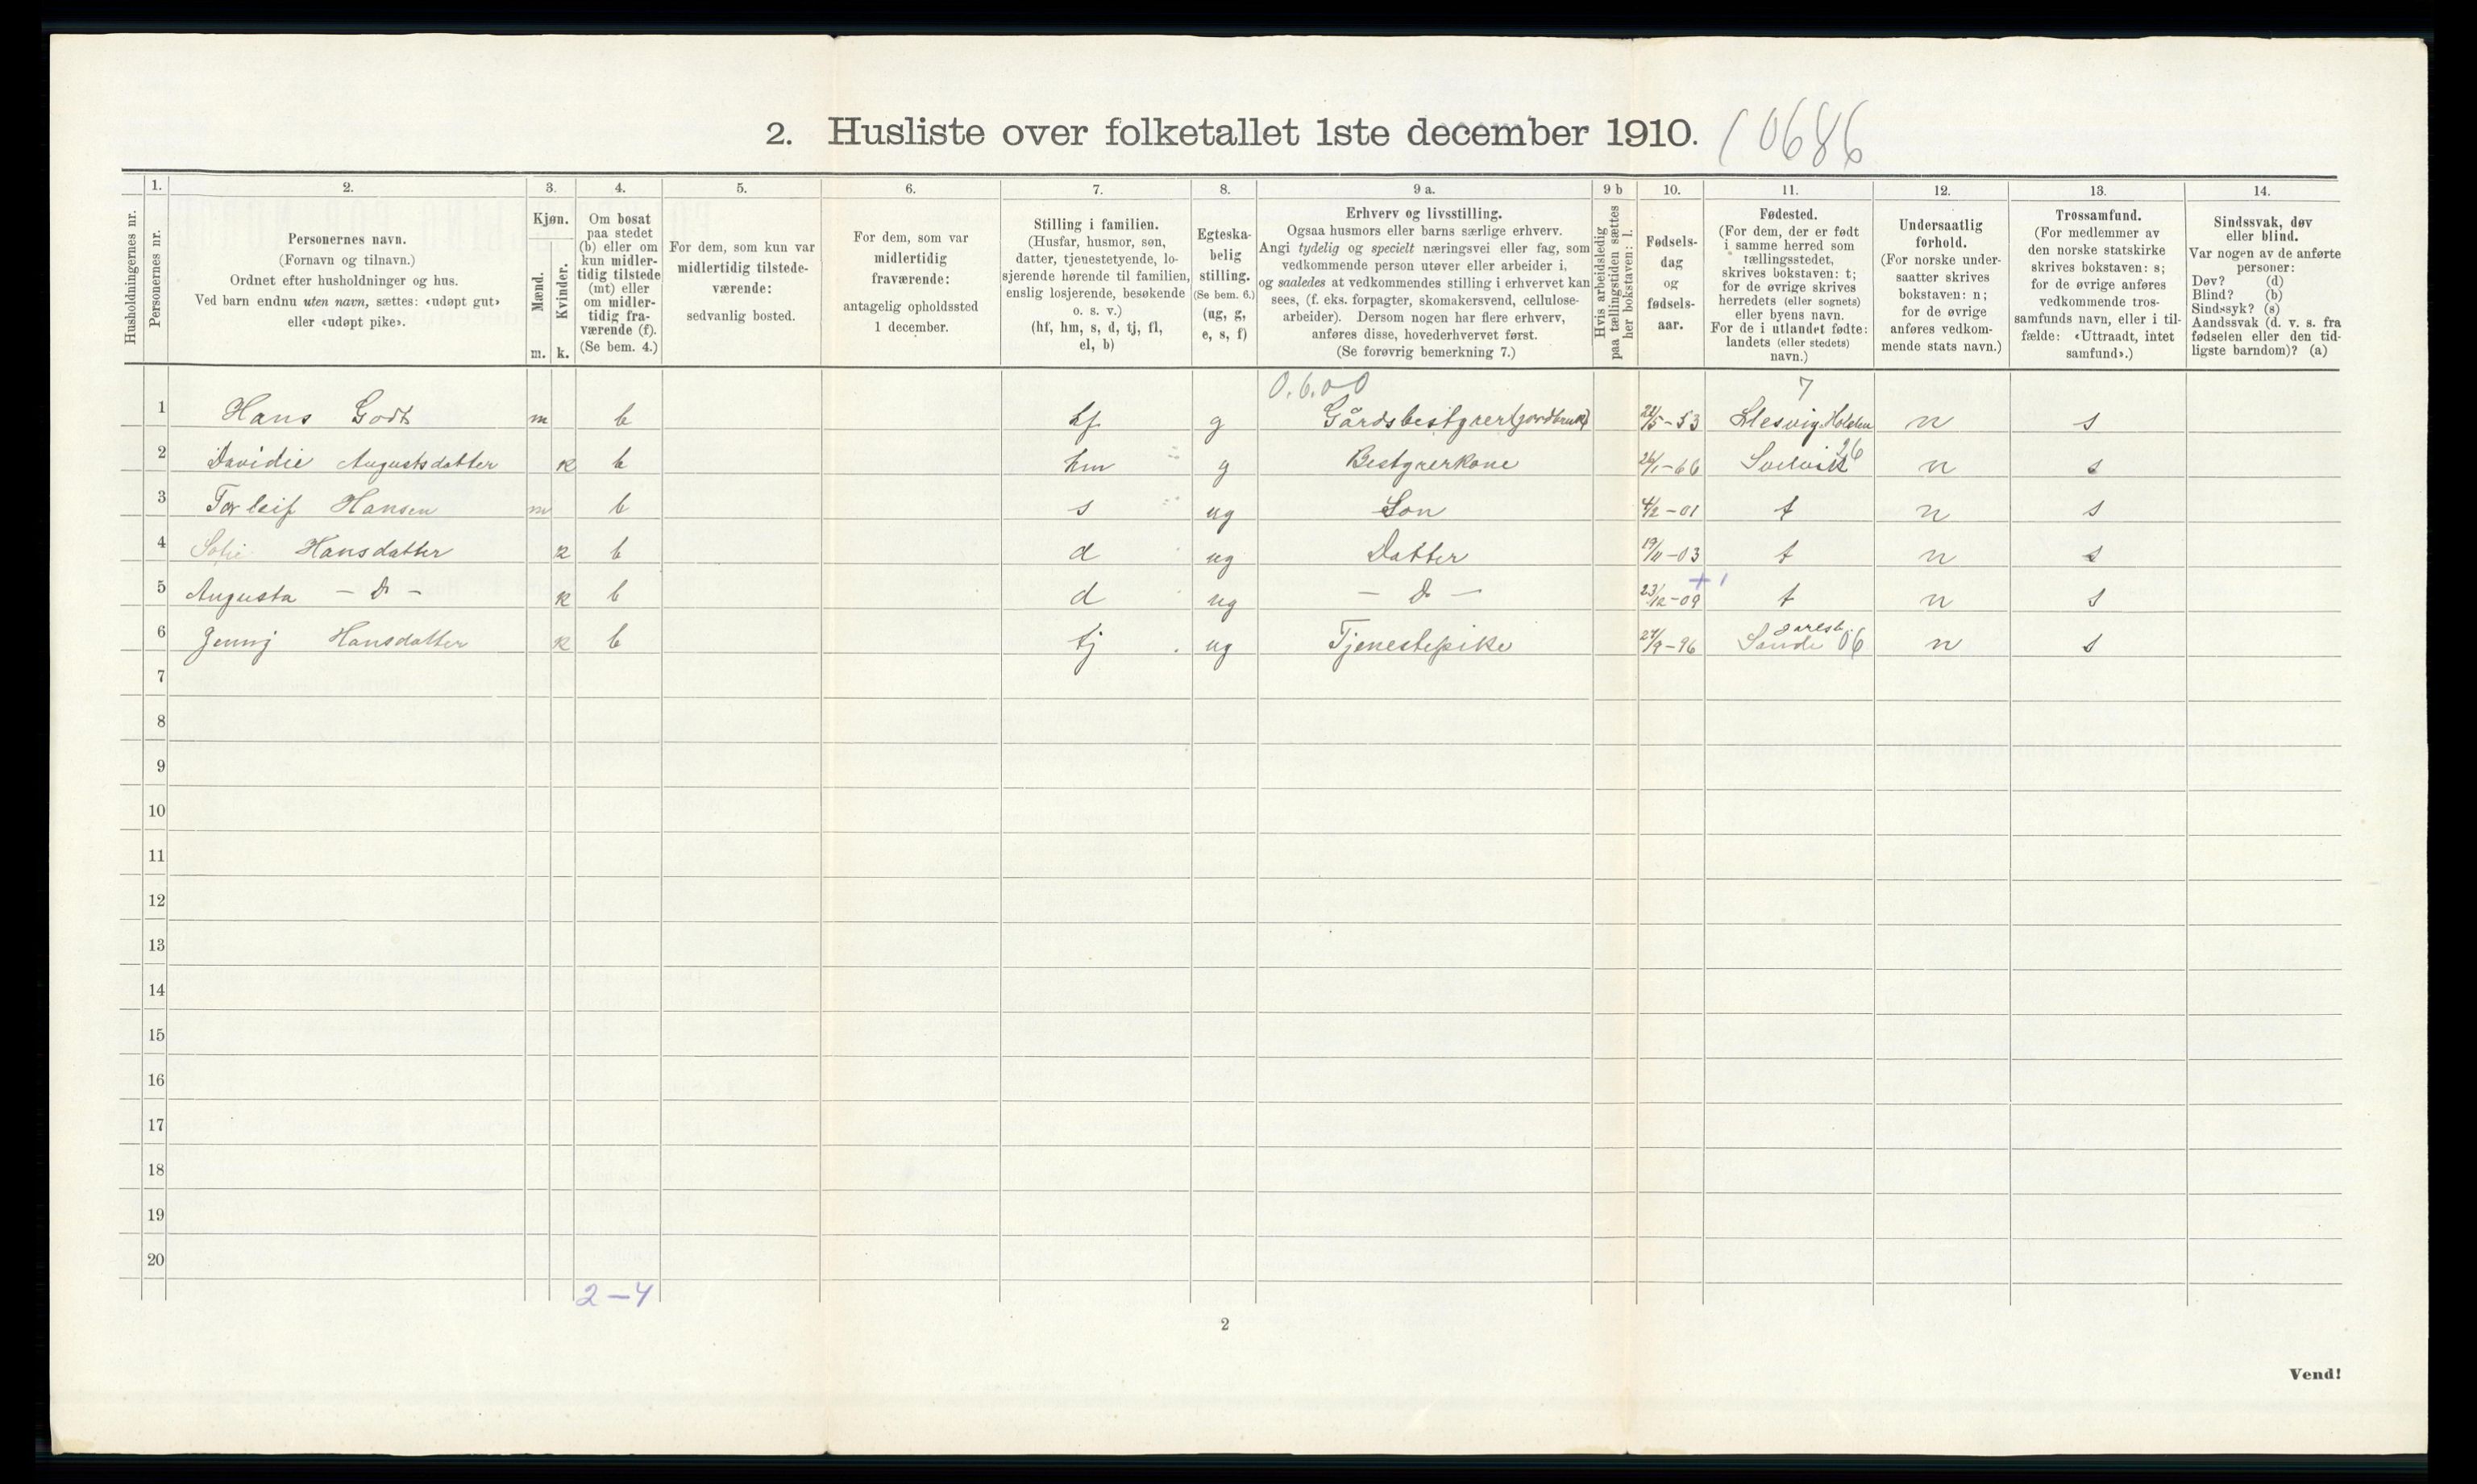 2. Husliste over folketallet 1ste december 1910. 10686
Husholdningernes nr.
1.
Personernes nr.
2.
Personernes navn.
(Fornavn og tilnavn.)
Ordnet efter husholdninger og hus.
Ved barn endnu uten navn, sættes: «udøpt gut»
eller «udøpt pike».
3.
Kjøn.
Mænd.
Kvinder.
m. k.
4.
Om bosat
paa stedet
(b) eller om
kun midler-
tidig tilstede
(mt) eller
om midler-
tidig fra-
værende (f).
(Se bem. 4.)
5.
For dem, som kun var
midlertidig tilstede-
værende:
sedvanlig bosted.
6.
For dem, som var
midlertidig
fraværende:
antagelig opholdssted
1 december.
7.
Stilling i familien.
(Husfar, husmor, søn,
datter, tjenestetyende, lo-
sjerende hørende til familien,
enslig losjerende, besøkende
o. s. v.)
(hf, hm, s, d, tj, fl,
el, b)
8.
Egteska-
belig
stilling.
(Se bem. 6.)
(ug, g,
e, s, f)
9 a.
Erhverv og livsstilling.
Ogsaa husmors eller barns særlige erhverv.
Angi tydelig og specielt næringsvei eller fag, som
vedkommende person utøver eller arbeider i,
og saaledes at vedkommendes stilling i erhvervet kan
sees, (f. eks. forpagter, skomakersvend, cellulose-
arbeider). Dersom nogen har flere erhverv,
anføres disse, hovederhvervet først.
(Se forøvrig bemerkning 7.)
9 b
Hvis arbeidsledig
paa tællingstiden sættes
her bokstaven: l.
10.
Fødsels-
dag
og
fødsels-
aar.
11.
Fødested.
(For dem, der er født
i samme herred som
tællingsstedet,
skrives bokstaven: t;
for de øvrige skrives
herredets (eller sognets)
eller byens navn.
For de i utlandet fødte:
landets (eller stedets)
navn.)
12.
Undersaatlig
forhold.
(For norske under-
saatter skrives
bokstaven: n;
for de øvrige
anføres vedkom-
mende stats navn.)
13.
Trossamfund.
(For medlemmer av
den norske statskirke
skrives bokstaven: s;
for de øvrige anføres
vedkommende tros-
samfunds navn, eller i til-
fælde: «Uttraadt, intet
samfund».)
14.
Sindssvak, døv
eller blind.
Var nogen av de anførte
personer:
Døv? (d)
Blind? (b)
Sindssyk? (s)
Aandssvak (d. v. s. fra
fødselen eller den tid-
ligste barndom)? (a)
0.6.00 7
1 Hans Godt m b hf g Gårdsbestyrer (jordbruk) 22/5-53 Slesvig Holsten n s
2 Davidie Augustsdatter k b hm g Bestyrerkone 26/1-66 Svelvik 26 n s
3 Torleif Hansen m b s ug Søn 4/2-01 t n s
4 Sofie Hansdatter k b d ug Datter 19/11-03 t n s
5 Augusta - Do - k b d ug - Do - 23/12-09 + 1 t n s
6 Jenny Hansdatter k b tj ug Tjenestepike 27/9-96 Sande Jarlsb. 06 n s
7
8
9
10
11
12
13
14
15
16
17
18
19
20
2-4
2
Vend!